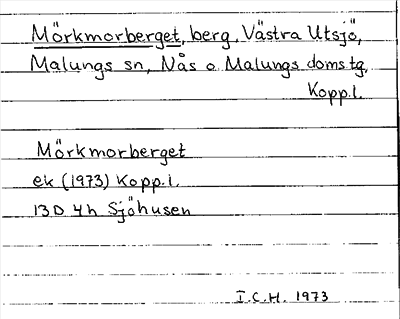 Mörkmorberget, berg, Västra Utsjö,
Malungs sn, Nås o Malungs domstg,
Kopp.l.
Mörkmorberget
ek (1973) Kopp.l.
13D 4h Sjöhusen
I.C.H. 1973